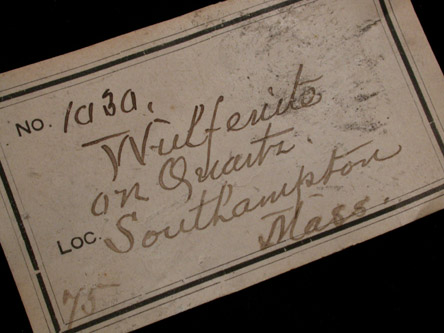 NO. 1030.
Wulfenite
on Quartz.
LOC. Southampton
Mass.
75